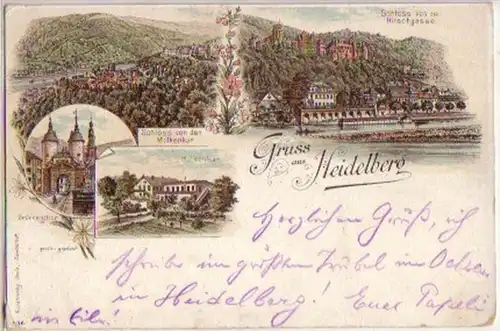 Schloss von der
Hirschgasse
Schloss von der
Molkenkur
Molkenkur
Brückenthor
Gruss
aus
Heidelberg
Herzlichen Gruß, ich
schreibe im größten Trubel im
in Heidelberg! Euer
in Eile!